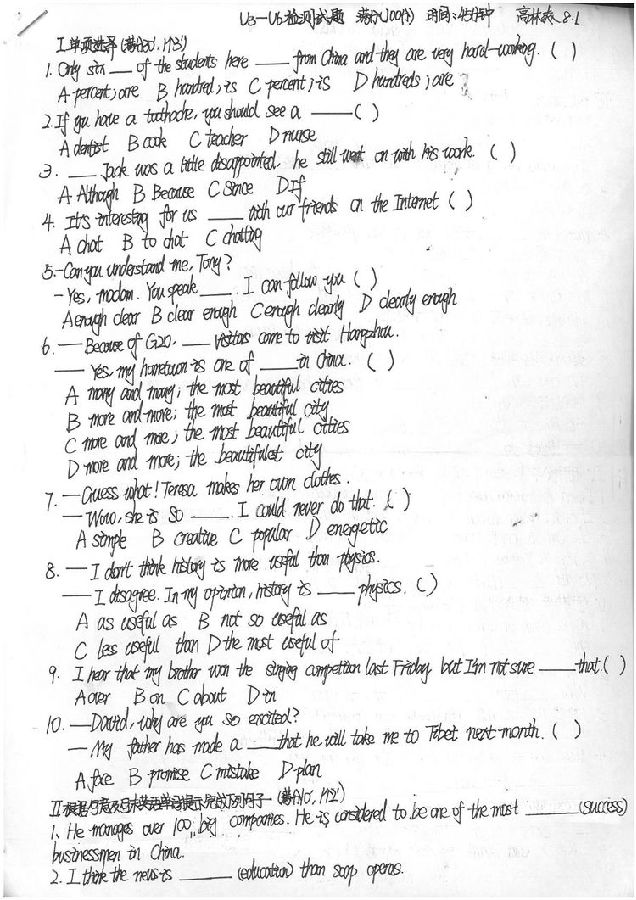 U3-U6检测试题 满分100分 时间: 分钟 8.1
I.单项选择(满分15, 1分/)
1. Only six ___ of the students here ___ from China and they are very hard-working. ( )
A percent; are B hundred; is C percent; is D hundreds; are
2. If you have a toothache, you should see a ___ ( )
A dentist B cook C teacher D nurse
3. ___ Jack was a little disappointed. he still went on with his work. ( )
A Although B Because C Since D If
4. It's interesting for us ___ with our friends on the Internet ( )
A chat B to chat C chatting
5.-Can you understand me, Tony?
-Yes, madam. You speak ___. I can follow you ( )
A enough clear B clear enough C enough clearly D clearly enough
6. — Because of G20. ___ visitors come to visit Hangzhou.
— Yes, my hometown is one of ___ in China. ( )
A many and many; the most beautiful cities
B more and more; the most beautiful city
C more and more; the most beautiful cities
D more and more; the beautifulest city
7. —Guess what! Teresa makes her own clothes.
—Wow, she is so ___. I could never do that. ( )
A simple B creative C popular D energetic
8. — I don't think history is more useful than physics.
— I disagree. In my opinion, history is ___ physics. ( )
A as useful as B not so useful as
C less useful than D the most useful of
9. I hear that my brother won the singing competition last Friday, but I'm not sure ___ that ( )
A over B on C about D in
10. —David, why are you so excited?
— My father has made a ___ that he will take me to Tebet next month. ( )
A face B promise C mistake D plan
II
1. He manages over 100 big companies. He is considered to be one of the most ___ (success)
businessmen in China.
2. I think the news is ___ (education) than soap operas.